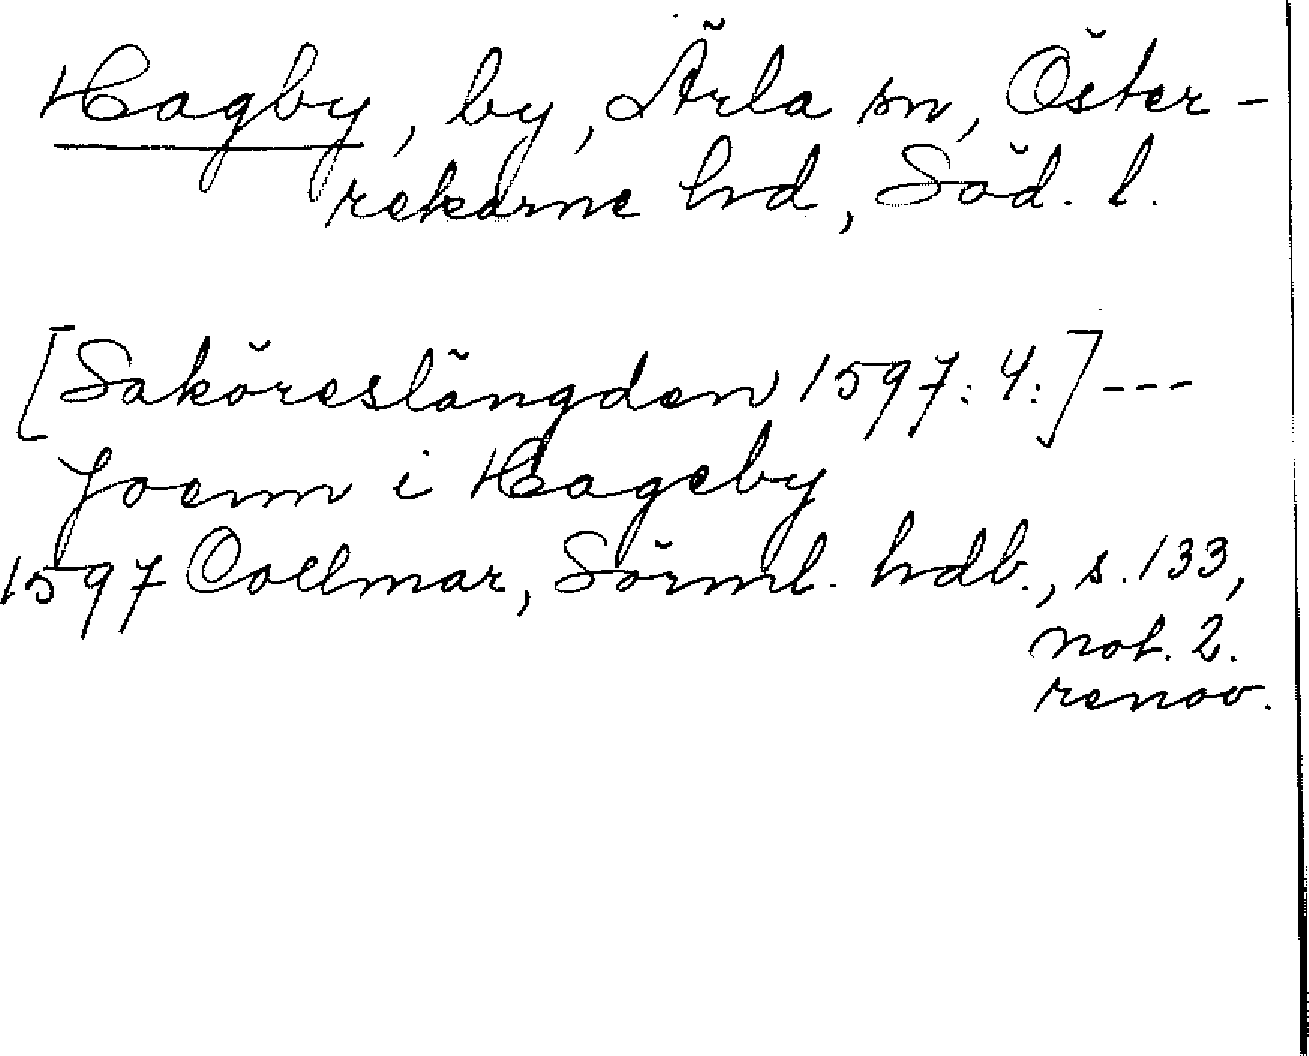 Hagby, by, Ärla sn, Öster-
rekarne hd, Söd. l.
[Saköreslängden 1597: 4:] ---
Joenn i Hageby
1597 Collmar, Sörml. hdb., s. 133,
not. 2.
renov.